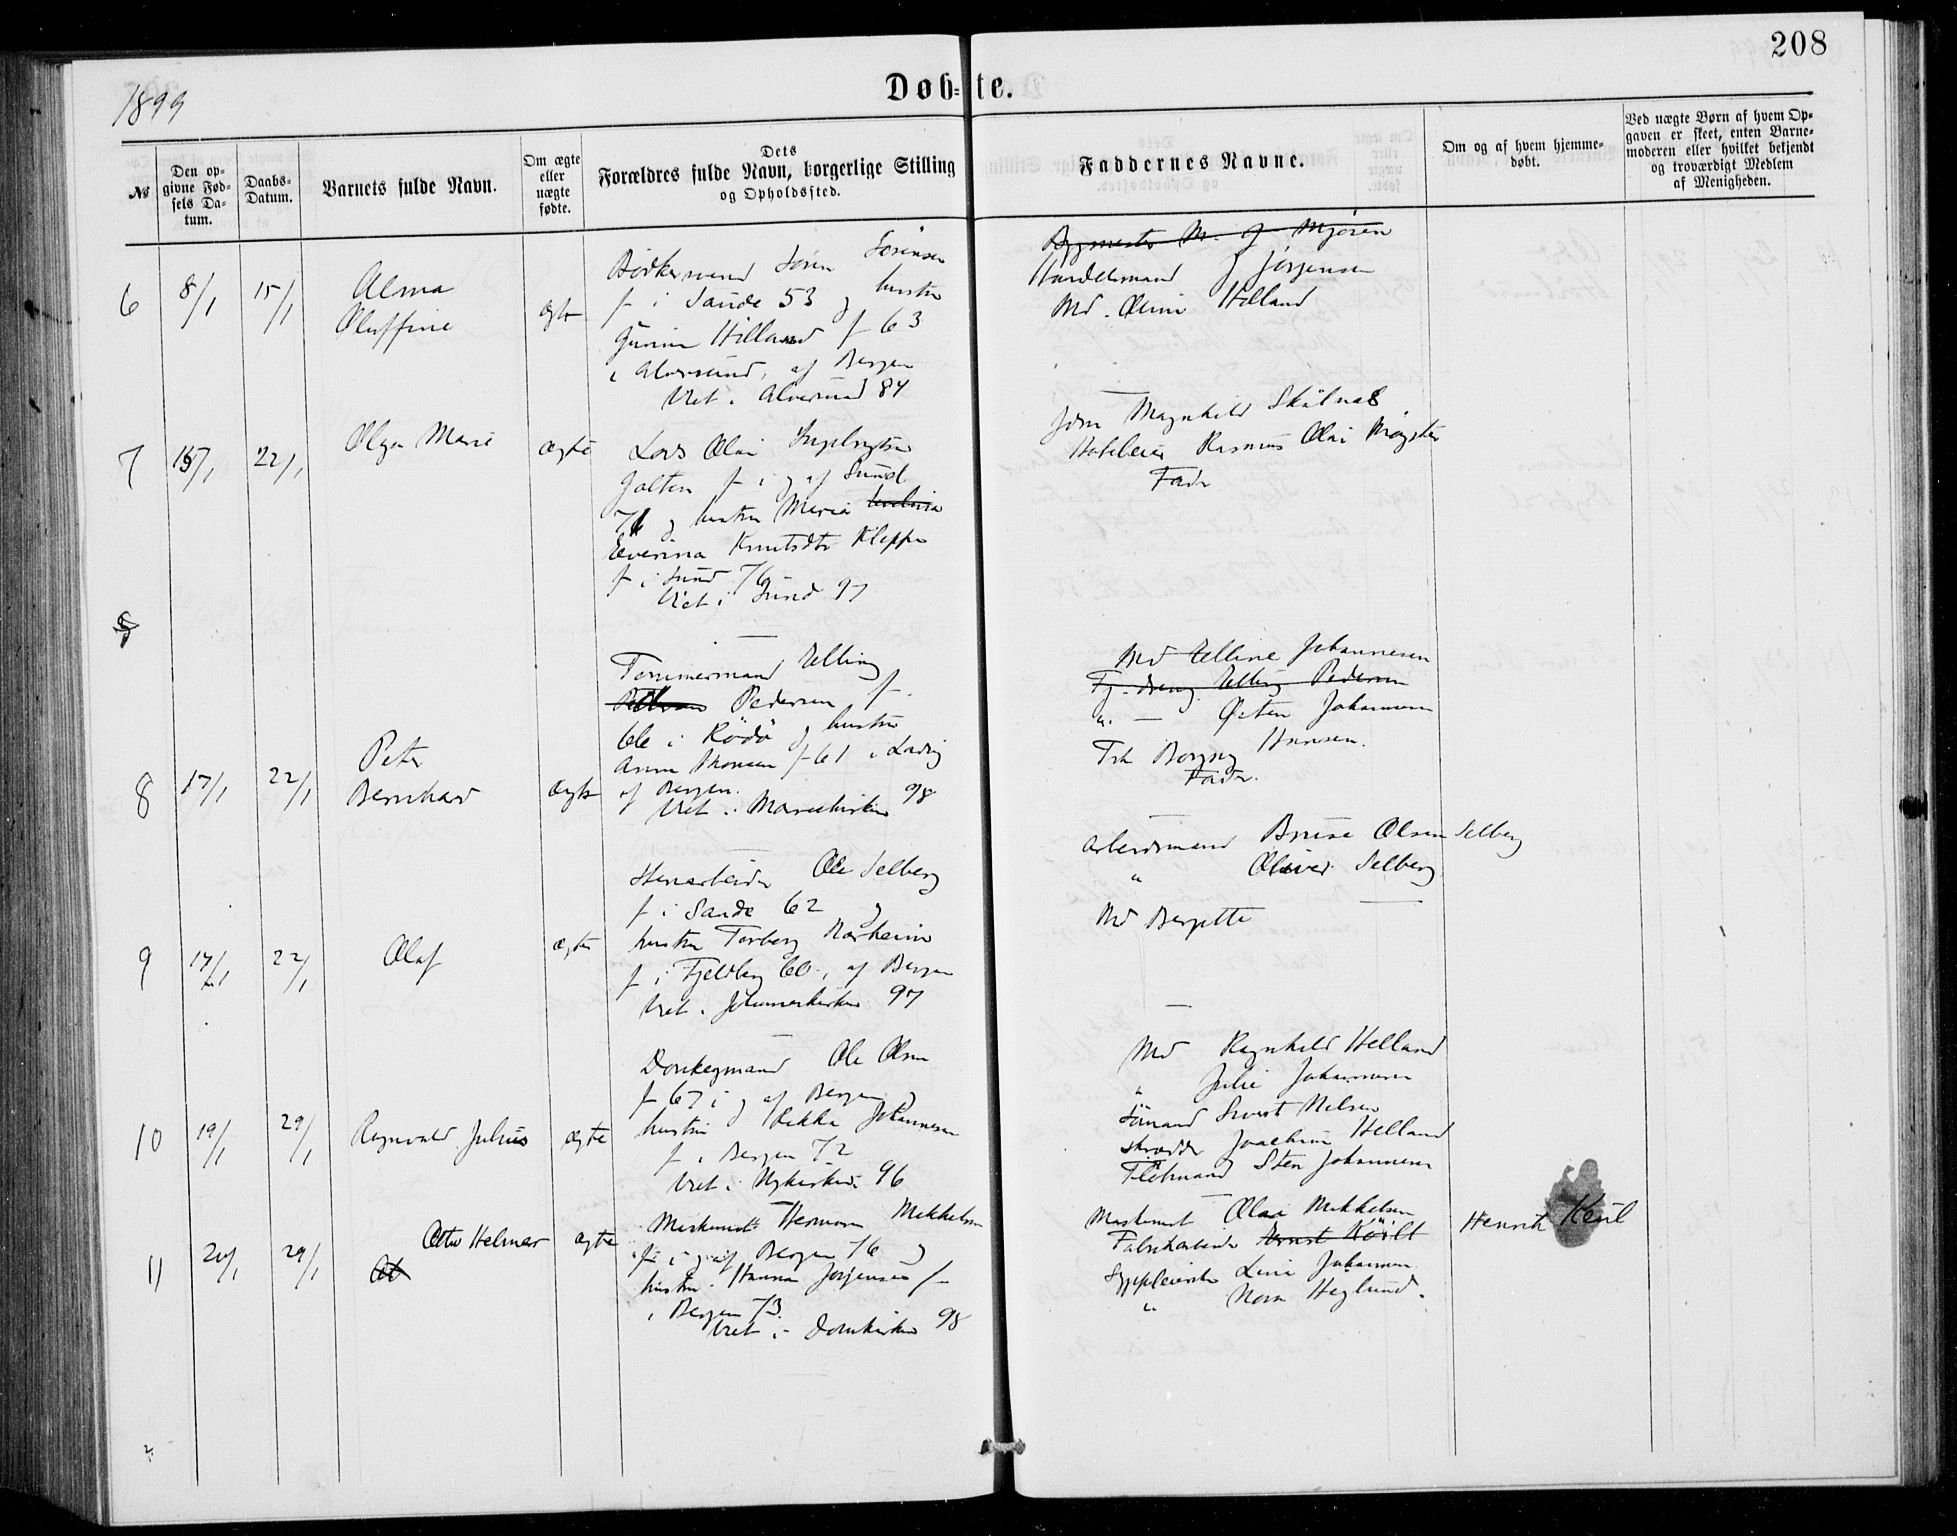 208
1899
Døbte.
№
Den op-
givne Fød-
sels Da-
tum.
Daabs-
Datum.
Barnets fulde Navn.
Om ægte
eller
uægte
fødte.
Dets
Forældres fulde Navn, borgerlige Stilling
og Opholdssted.
Faddernes Navne.
Om og af hvem hjemme-
døbt.
Ved uægte Børn af hvem Op-
gaven er skeet, enten Barne-
moderen eller hvilket bekjendt
og troværdigt Medlem
af Menigheden.
6
8/1
15/1
Alma
Oluffine
ægte
Bødkersvend Søren Sørensen
f i Sande 53 og hustru
Hilland f 63
i Alversund, af Bergen
Viet i Alversund 84
M. J. Mjøsen
Handelsmand J Jørgensen
Md. Oline Hilland
7
15/1
22/1
Olga Marie
ægte
Lars Olai Ingebrigtsen
Golten f i og af Sund
76 og hustru Maria
Severina Knutsdtr Kleppe
f i Sund 76
Viet i Sund 97
Jdm Magnhild Skålnes
Hoteleier Rasmus Olai Møgster
Fader
8
17/1
22/1
Peter
Bernhard
ægte
Tømmermand Elling
Pedersen f.
66 i Rödö og hustru
Anna Thomsen f 61 i Lavig
af Bergen.
Viet i Mariekirken 98
Md Elline Johannesen
Tj. dreng Elling Pedersen
" — Østen Johannesen
Frk Borgny Hansen.
Fader.
9
17/1
22/1
Olaf
ægte
Stenarbeider Ole Selberg
f i Sande 62 og
hustru Torborg Norheim
f i Fjeldberg 66, af Bergen
Viet i Johanneskirken 97
Arbeidsmand Brese Olsen Selberg
" Oliver Selberg
Md Bergitte —
10
19/1
29/1
Ragnvald Julius
ægte
Donkeymand Ole Olsen
f 67 i og af Bergen og
hustru Rikka Johannesen
f i Bergen 72
Viet i Nykirken 96
Md Ragnhild Helland
" Julie Johannesen
Sömand Sivert Nilsen
Skrædder Joachim Helland
Flötmand Sten Johannesen
11
20/1
29/1
Otto Helmer
Ot
ægte
Maskinist Herman Mikkelsen
f i og af Bergen 76 og
hustru Hanna Jørgensen f
i Bergen 73.
Viet i Domkirken 98
Maskinist Olai Mikkelsen
Fabrikarbeider Ernst Köilt Henrik Keil
Sygepleierske Lina Johannesen
" Nora Heglund.